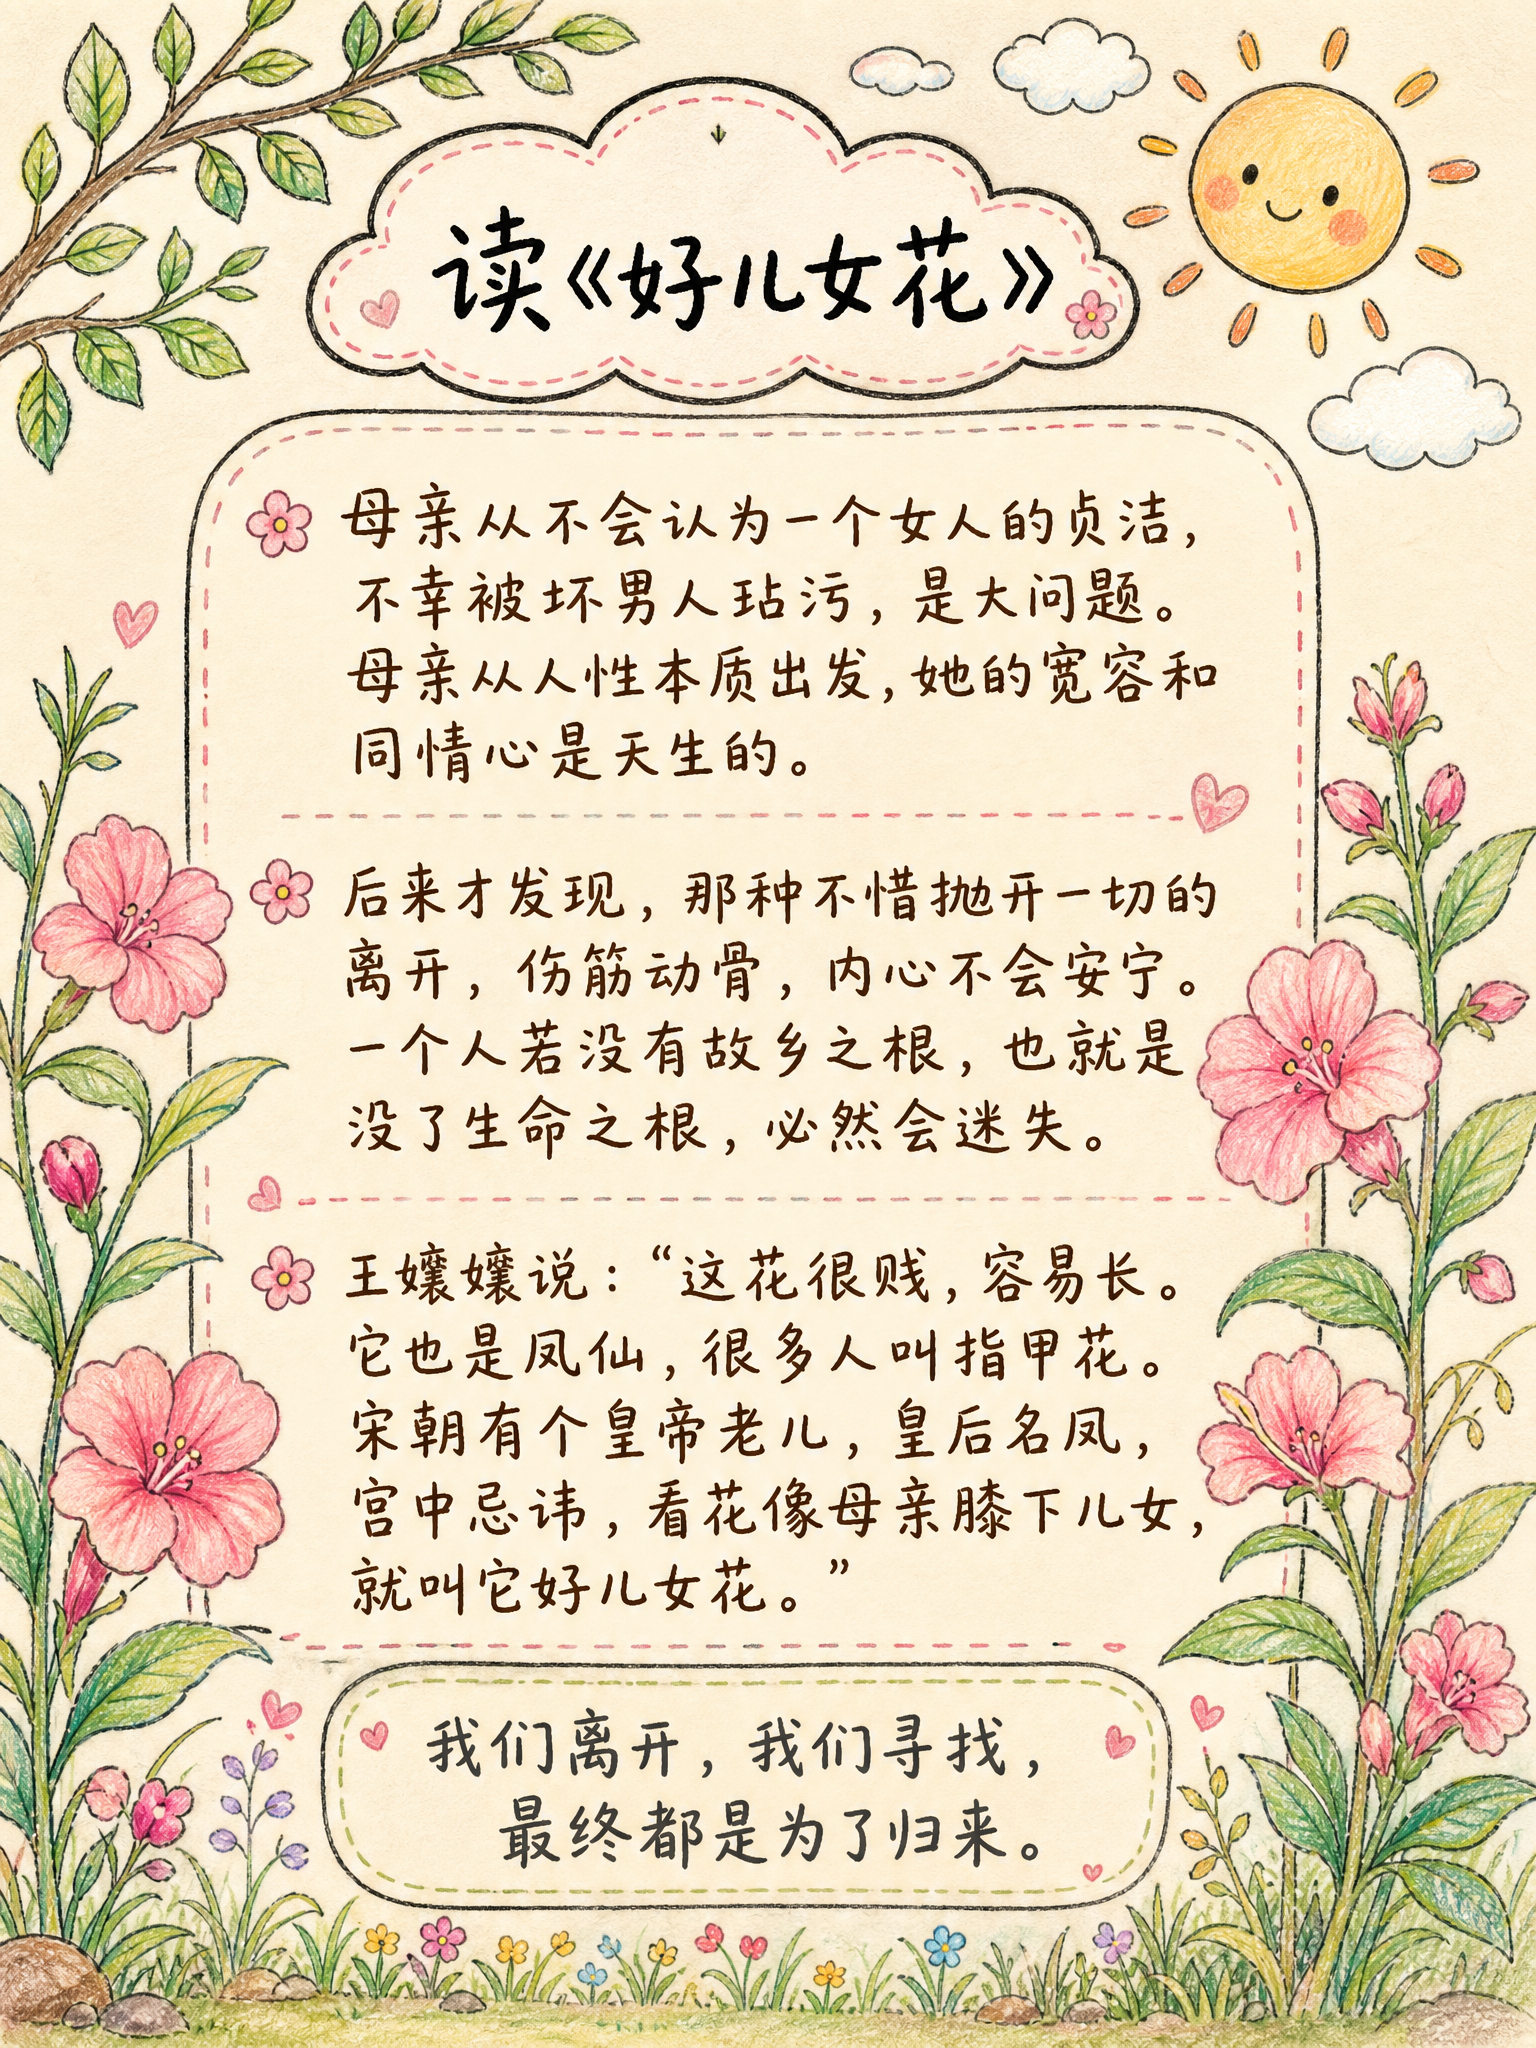 读《好儿女花》
母亲从不会认为一个女人的贞洁，
不幸被坏男人玷污，是大问题。
母亲从人性本质出发，她的宽容和
同情心是天生的。
后来才发现，那种不惜抛开一切的
离开，伤筋动骨，内心不会安宁。
一个人若没有故乡之根，也就是
没了生命之根，必然会迷失。
王孃孃说：“这花很贱，容易长。
它也是凤仙，很多人叫指甲花。
宋朝有个皇帝老儿，皇后名凤，
宫中忌讳，看花像母亲膝下儿女，
就叫它好儿女花。”
我们离开，我们寻找，
最终都是为了归来。